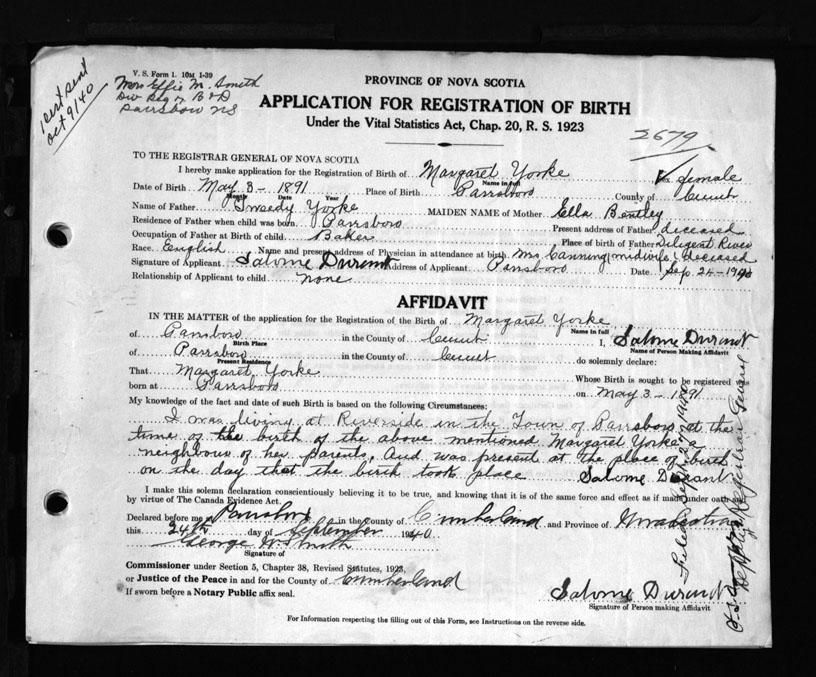 V. S. Form 1. 10M 1-39
Mrs Effie M. Smith
Div Reg of B & D
Parrsboro NS
Cert sent
Oct 9/40
PROVINCE OF NOVA SCOTIA
APPLICATION FOR REGISTRATION OF BIRTH
Under the Vital Statistics Act, Chap. 20, R. S. 1923
2679
TO THE REGISTRAR GENERAL OF NOVA SCOTIA
I hereby make application for the Registration of Birth of Margaret Yorke female
Name in full
Date of Birth May 3 - 1891 Place of Birth Parrsboro County of Cumb
Month Date Year
Name of Father Yorke MAIDEN NAME of Mother Ella Bentley
Residence of Father when child was born Parrsboro Present address of Father deceased
Occupation of Father at Birth of child Baker Place of birth of Father Diligent River
Race. English Name and present address of Physician in attendance at birth Mrs Canning (midwife) deceased
Signature of Applicant Salome Durant Address of Applicant Parrsboro Date Sep. 24 - 1940
Relationship of Applicant to child none
AFFIDAVIT
IN THE MATTER of the application for the Registration of the Birth of Margaret Yorke
Name in full
of Parrsboro in the County of Cumb I, Salome Durant
Birth Place Name of Person Making Affidavit
of Parrsboro in the County of Cumb do solemnly declare:
Present Residence
That Margaret Yorke Whose Birth is sought to be registered was
born at Parrsboro on May 3 - 1891
My knowledge of the fact and date of such Birth is based on the following Circumstances:
I was living at Riverside in the Town of Parrsboro at the
time of the birth of the above mentioned Margaret Yorke a
neighbour of her parents. And was present at the place of birth
on the day that the birth took place Salome Durant
I make this solemn declaration conscientiously believing it to be true, and knowing that it is of the same force and effect as if made under oath
by virtue of The Canada Evidence Act.
Declared before me at Parrsboro in the County of Cumberland and Province of Nova Scotia
this 24th day of September 1940
George H Smith
Signature of
Commissioner under Section 5, Chapter 38, Revised Statutes, 1923,
or Justice of the Peace in and for the County of Cumberland
If sworn before a Notary Public affix seal.
Salome Durant
Signature of Person making Affidavit
For Information respecting the filling out of this Form, see Instructions on the reverse side.
Filed
Registrar General